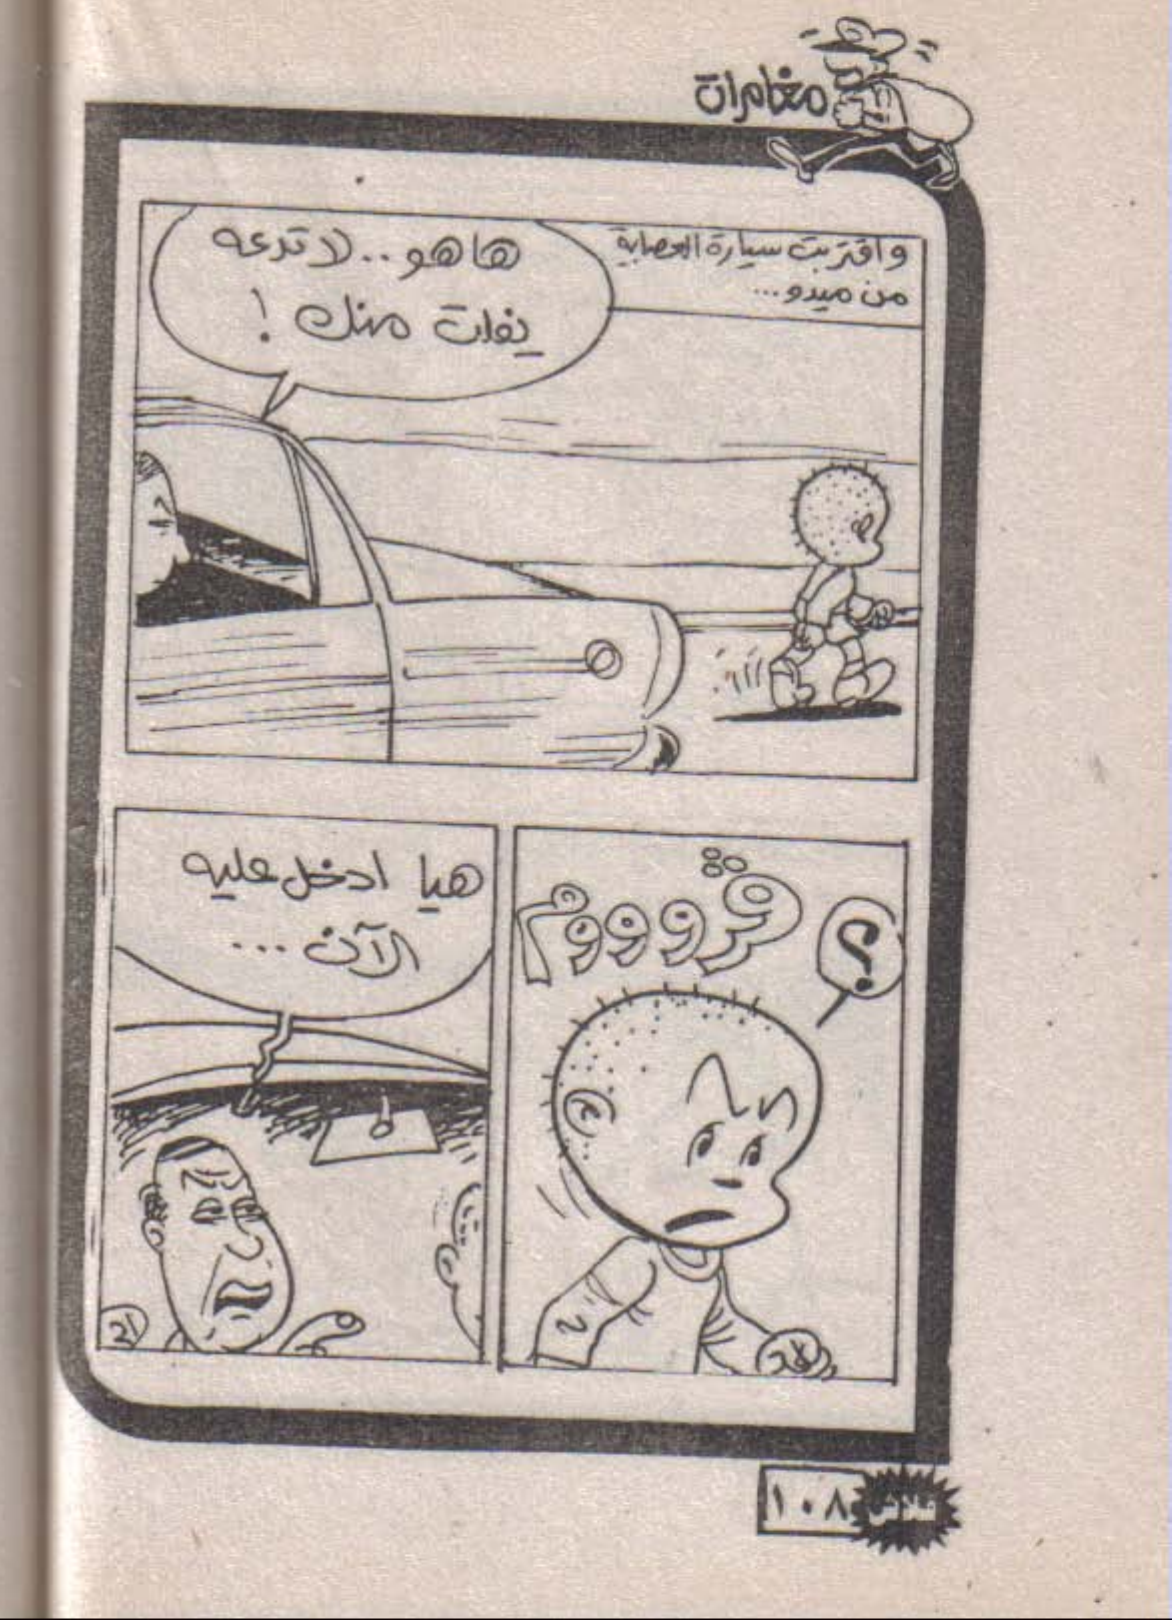 مغامرات
واقتربت سيارة العصابة
من ميدو...
ها هو.. لا تدعه
يفلت منك !
؟
ڤروووم
هيا ادخل عليه
الآن ...
فلاش
١٠٨